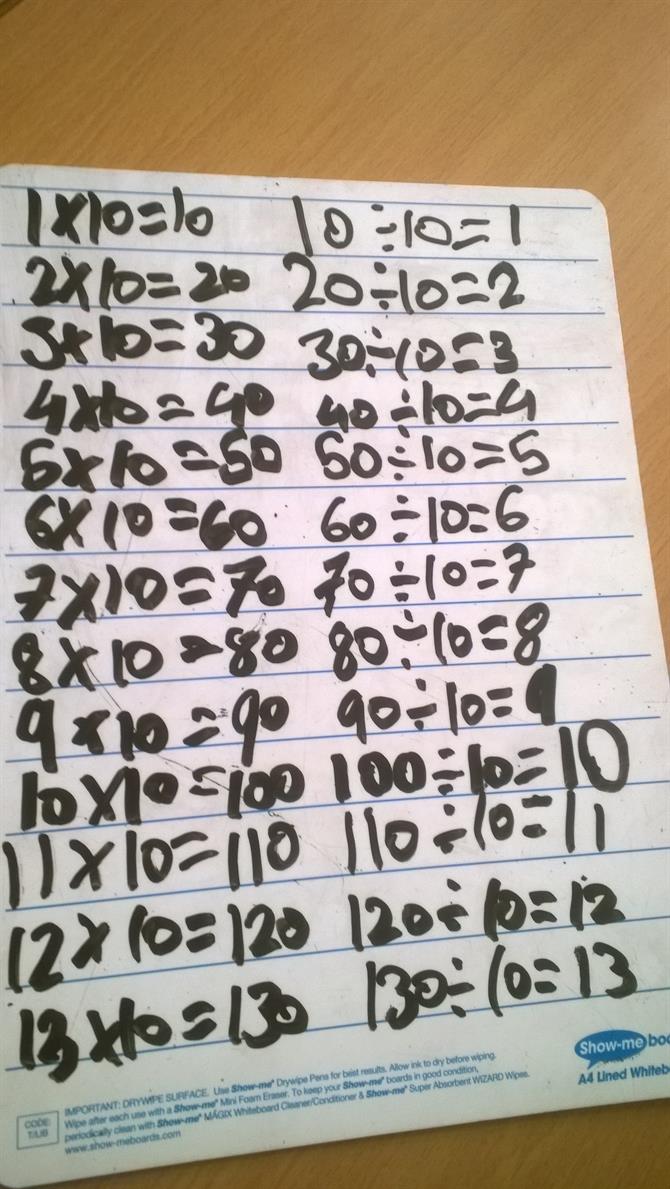 1×10=10 10÷10=1
2×10=20 20÷10=2
3×10=30 30÷10=3
4×10=40 40÷10=4
5×10=50 50÷10=5
6×10=60 60÷10=6
7×10=70 70÷10=7
8×10=80 80÷10=8
9×10=90 90÷10=9
10×10=100 100÷10=10
11×10=110 110÷10=11
12×10=120 120÷10=12
13×10=130 130÷10=13
Show-me
A4 Lined
CODE:
T/LIB
IMPORTANT: DRYWIPE SURFACE. Use Show-me® Drywipe Pens for best results. Allow ink to dry before wiping.
Wipe after each use with a Show-me® Mini Foam Eraser. To keep your Show-me® boards in good condition,
periodically clean with Show-me® MAGIX Whiteboard Cleaner/Conditioner & Show-me® Super Absorbent WIZARD Wipes.
www.show-meboards.com